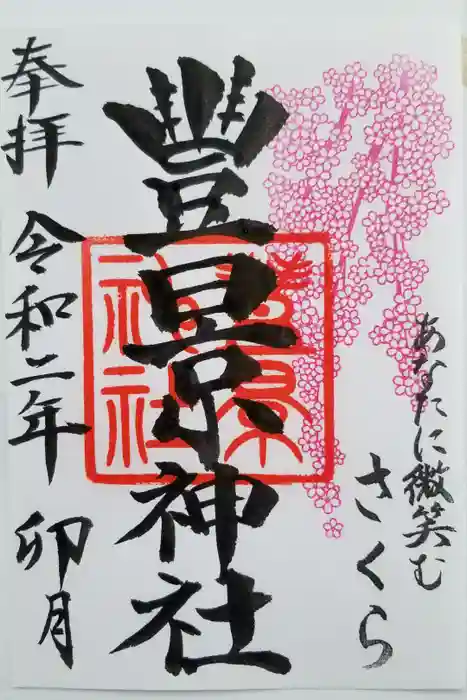 あなたに微笑む
さくら
豐景神社
豐景
神社
奉拝 令和二年 卯月